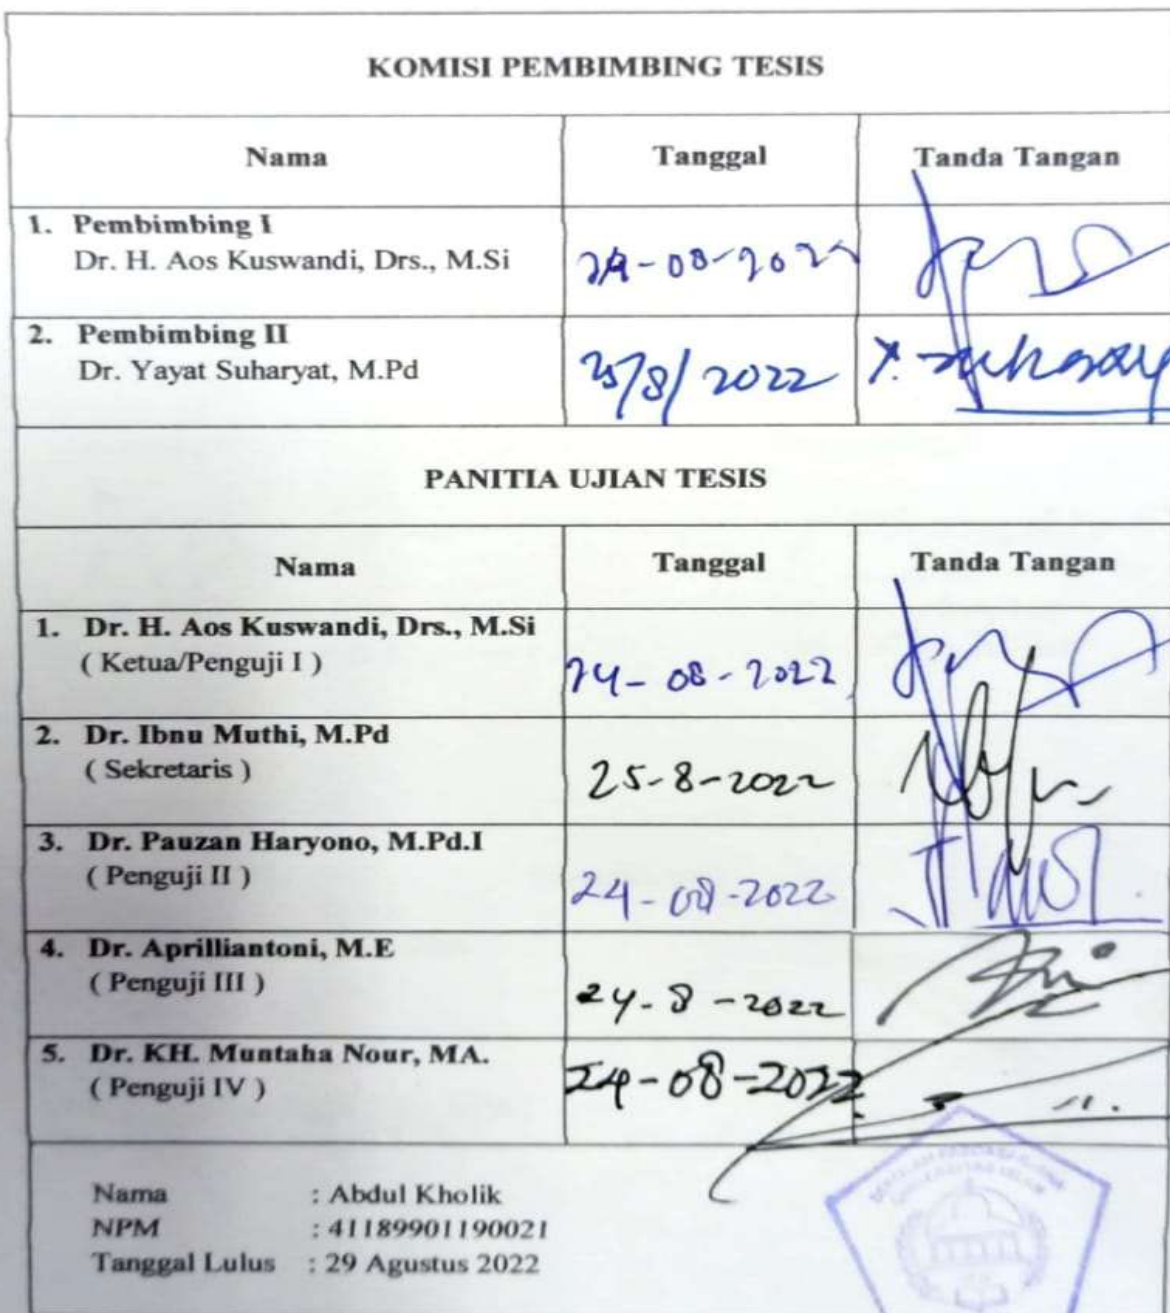 KOMISI PEMBIMBING TESIS
Nama Tanggal Tanda Tangan
1. Pembimbing I
Dr. H. Aos Kuswandi, Drs., M.Si
2. Pembimbing II
Dr. Yayat Suharyat, M.Pd
25/8/2022
PANITIA UJIAN TESIS
Nama Tanggal Tanda Tangan
1. Dr. H. Aos Kuswandi, Drs., M.Si
( Ketua/Penguji I )
24-08-2022
2. Dr. Ibnu Muthi, M.Pd
( Sekretaris )
25-8-2022
3. Dr. Pauzan Haryono, M.Pd.I
( Penguji II )
24-08-2022
4. Dr. Aprilliantoni, M.E
( Penguji III )
24-8-2022
5. Dr. KH. Muntaha Nour, MA.
( Penguji IV )
24-08-2022
Nama : Abdul Kholik
NPM : 41189901190021
Tanggal Lulus : 29 Agustus 2022